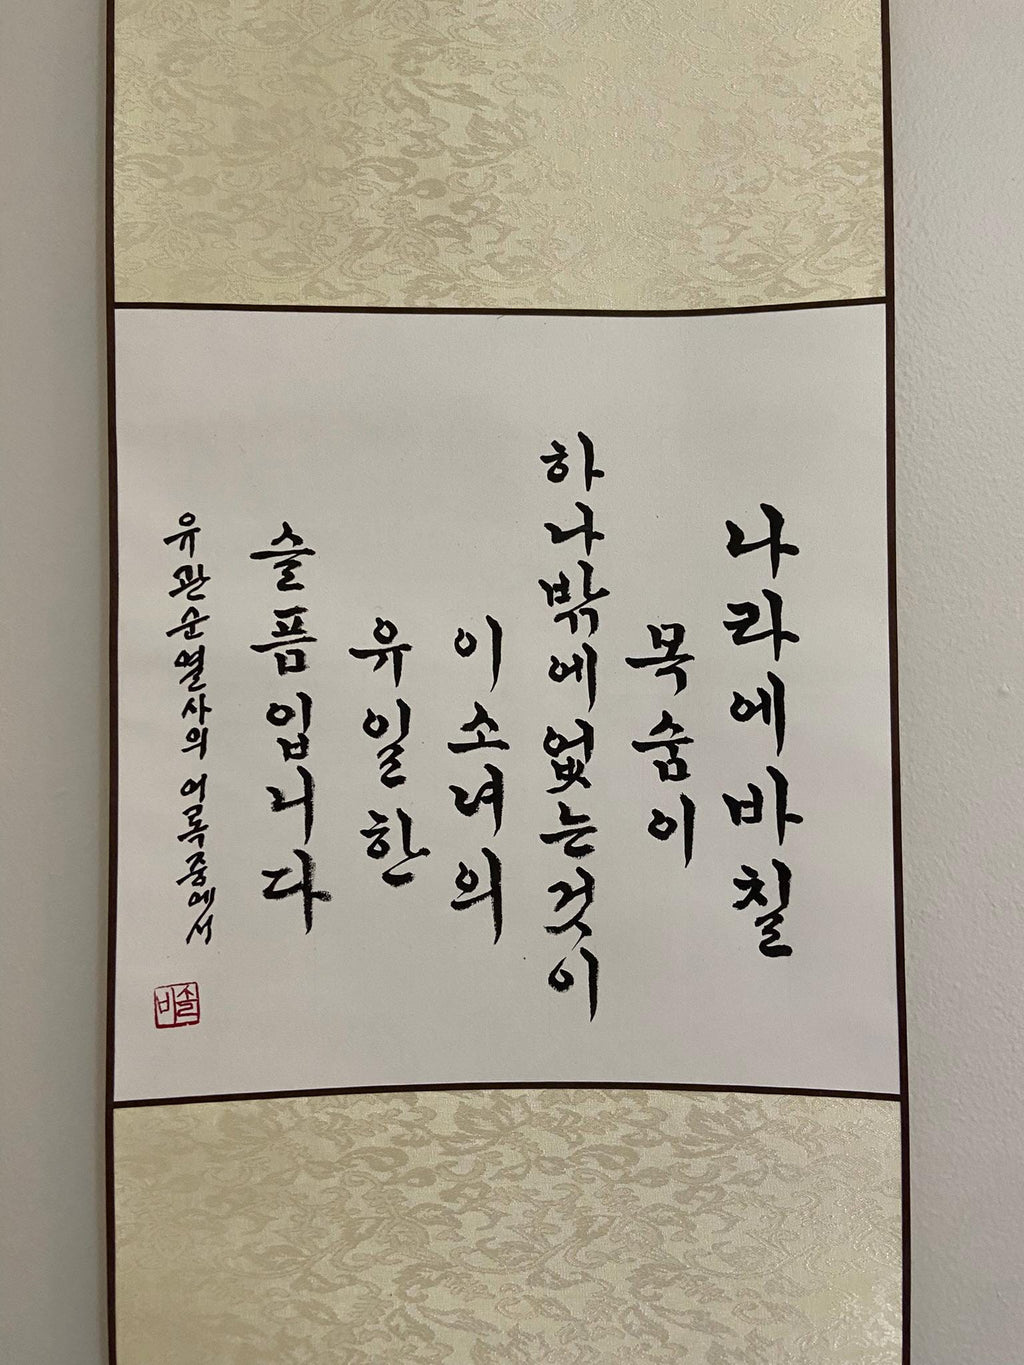 나라에바칠
목숨이
하나밖에없는것이
이소녀의
유일한
슬픔입니다
유관순열사의 어록중에서
솔비